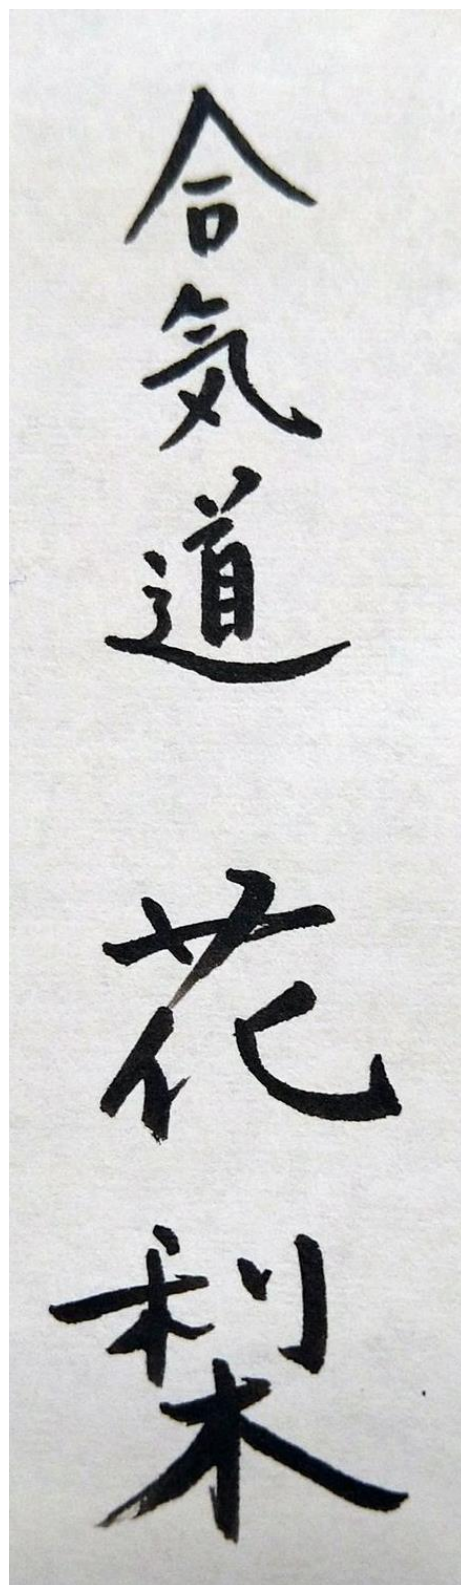 合気道 花梨